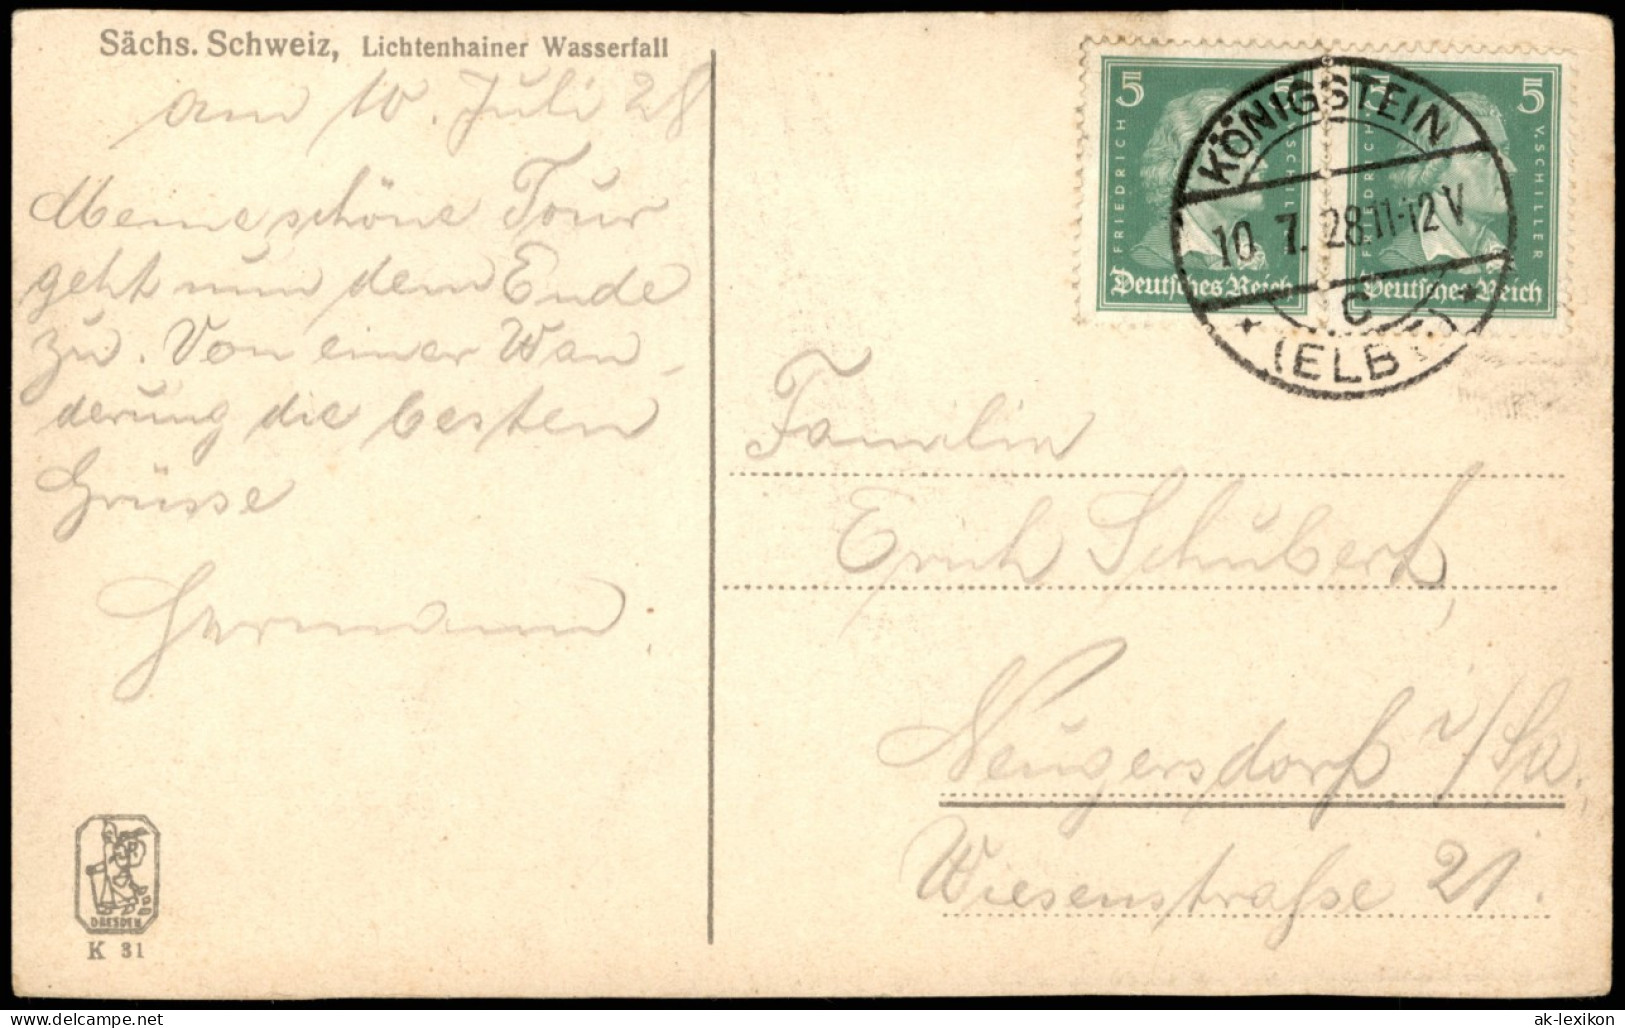 Sächs. Schweiz, Lichtenhainer Wasserfall
am 10. Juli 28
Meine schöne Tour
geht nun dem Ende
zu. Von einer Wan-
derung die besten
Grüsse
Hermann.
DRESDEN
K 31
5 5
FRIEDRICH V. SCHILLER
Deutsches Reich
5 5
FRIEDRICH V. SCHILLER
Deutsches Reich
KÖNIGSTEIN
10. 7. 28. 11-12 V
* C *
(ELBE)
Familie
Erich Schubert,
Neugersdorf i/Sa.
Wiesenstraße 21.
ak-ansichtskarten.de
ak-lexikon